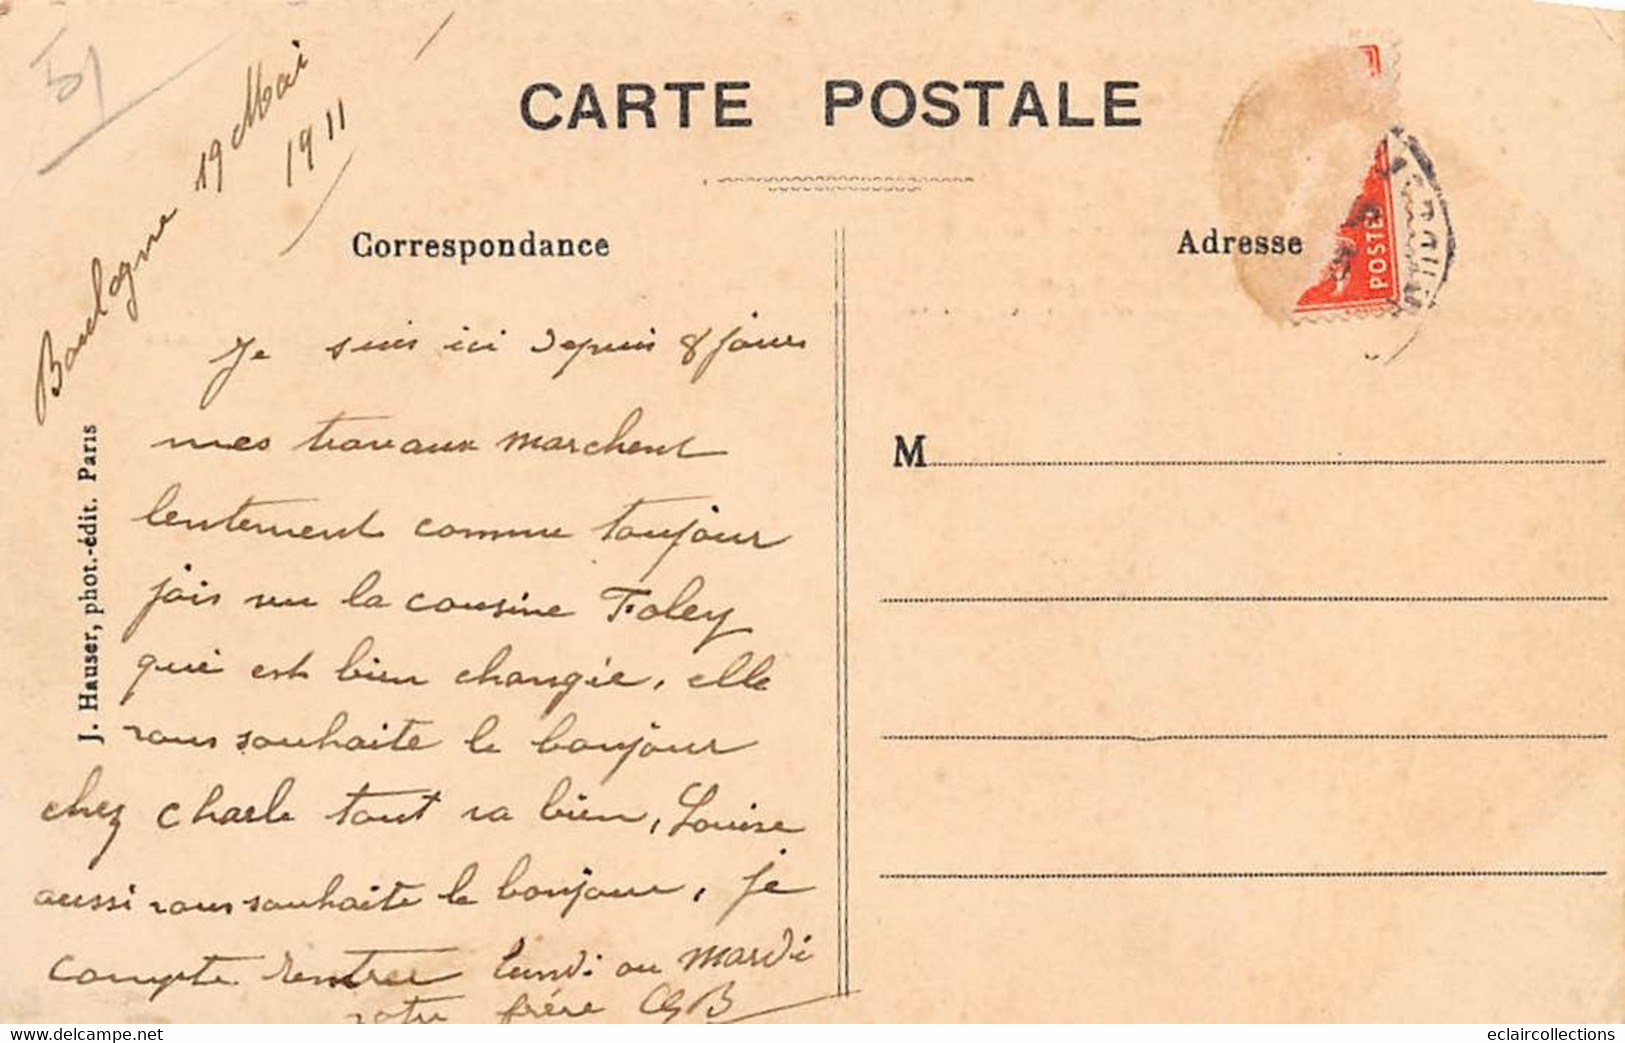 51
Boulogne 19 Mai
1911
CARTE POSTALE
Correspondance
Adresse
POSTES
Je suis ici depuis 8 jours
mes travaux marchent
lentement comme toujour
jais vu la cousine Foley
qui est bien changée, elle
vous souhaite le bonjour
chez Charle tout va bien, Louise
aussi vous souhaite le bonjour, je
compte rentrer lundi ou mardi
votre frère
M
J. Hauser, phot.-édit. Paris
https://www.delcampe.net
eclaircollections